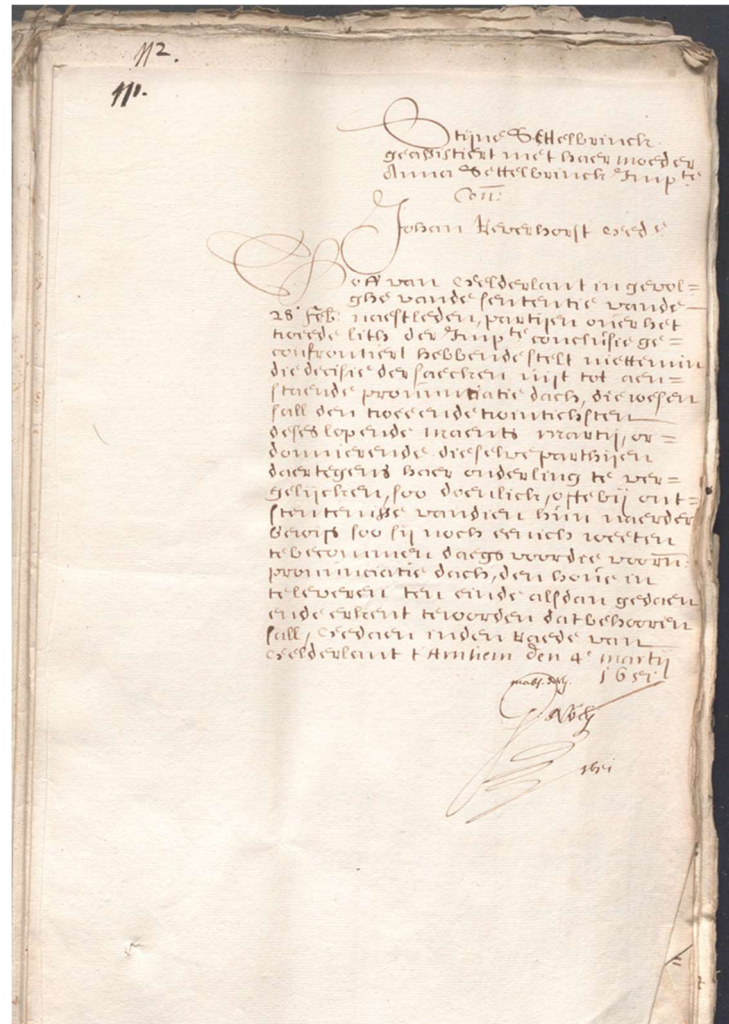 112.
111.
Stijne Settelbrinck
geassistiert met haer moeder
Anna Settelbrinck Imp.te
Con:
Johan Keverhorst Gede.
Hoff van Gelderlant in gevol=
ghe vande sententie vande
28. Feb. naestleden, partijen over het
tweede lith der Imp.te conclusie ge=
confrontiert hebbende stelt niettemin
die decisie der saecken uijt tot aen=
staende pronuntiatie dach, die wesen
sall den tweeendetwintichsten
deses lopende maents Martij, or=
donnierende dieselve parthijen
daertegens haer onderling te ver=
gelijcken, soo doenlich, ofte bij ont=
stentenisse van dien hun naerder
bewijs soo sij noch eenich weeten
te becommen daegs voor die voorn:
pronunciatie dach, den hove in
televeren ten einde alsdan gedaen
ende erkent te worden dat behooren
sall, Gedaen inden Raede van
Gelderlant t'Arnhem den 4.e Martij
1651
1651